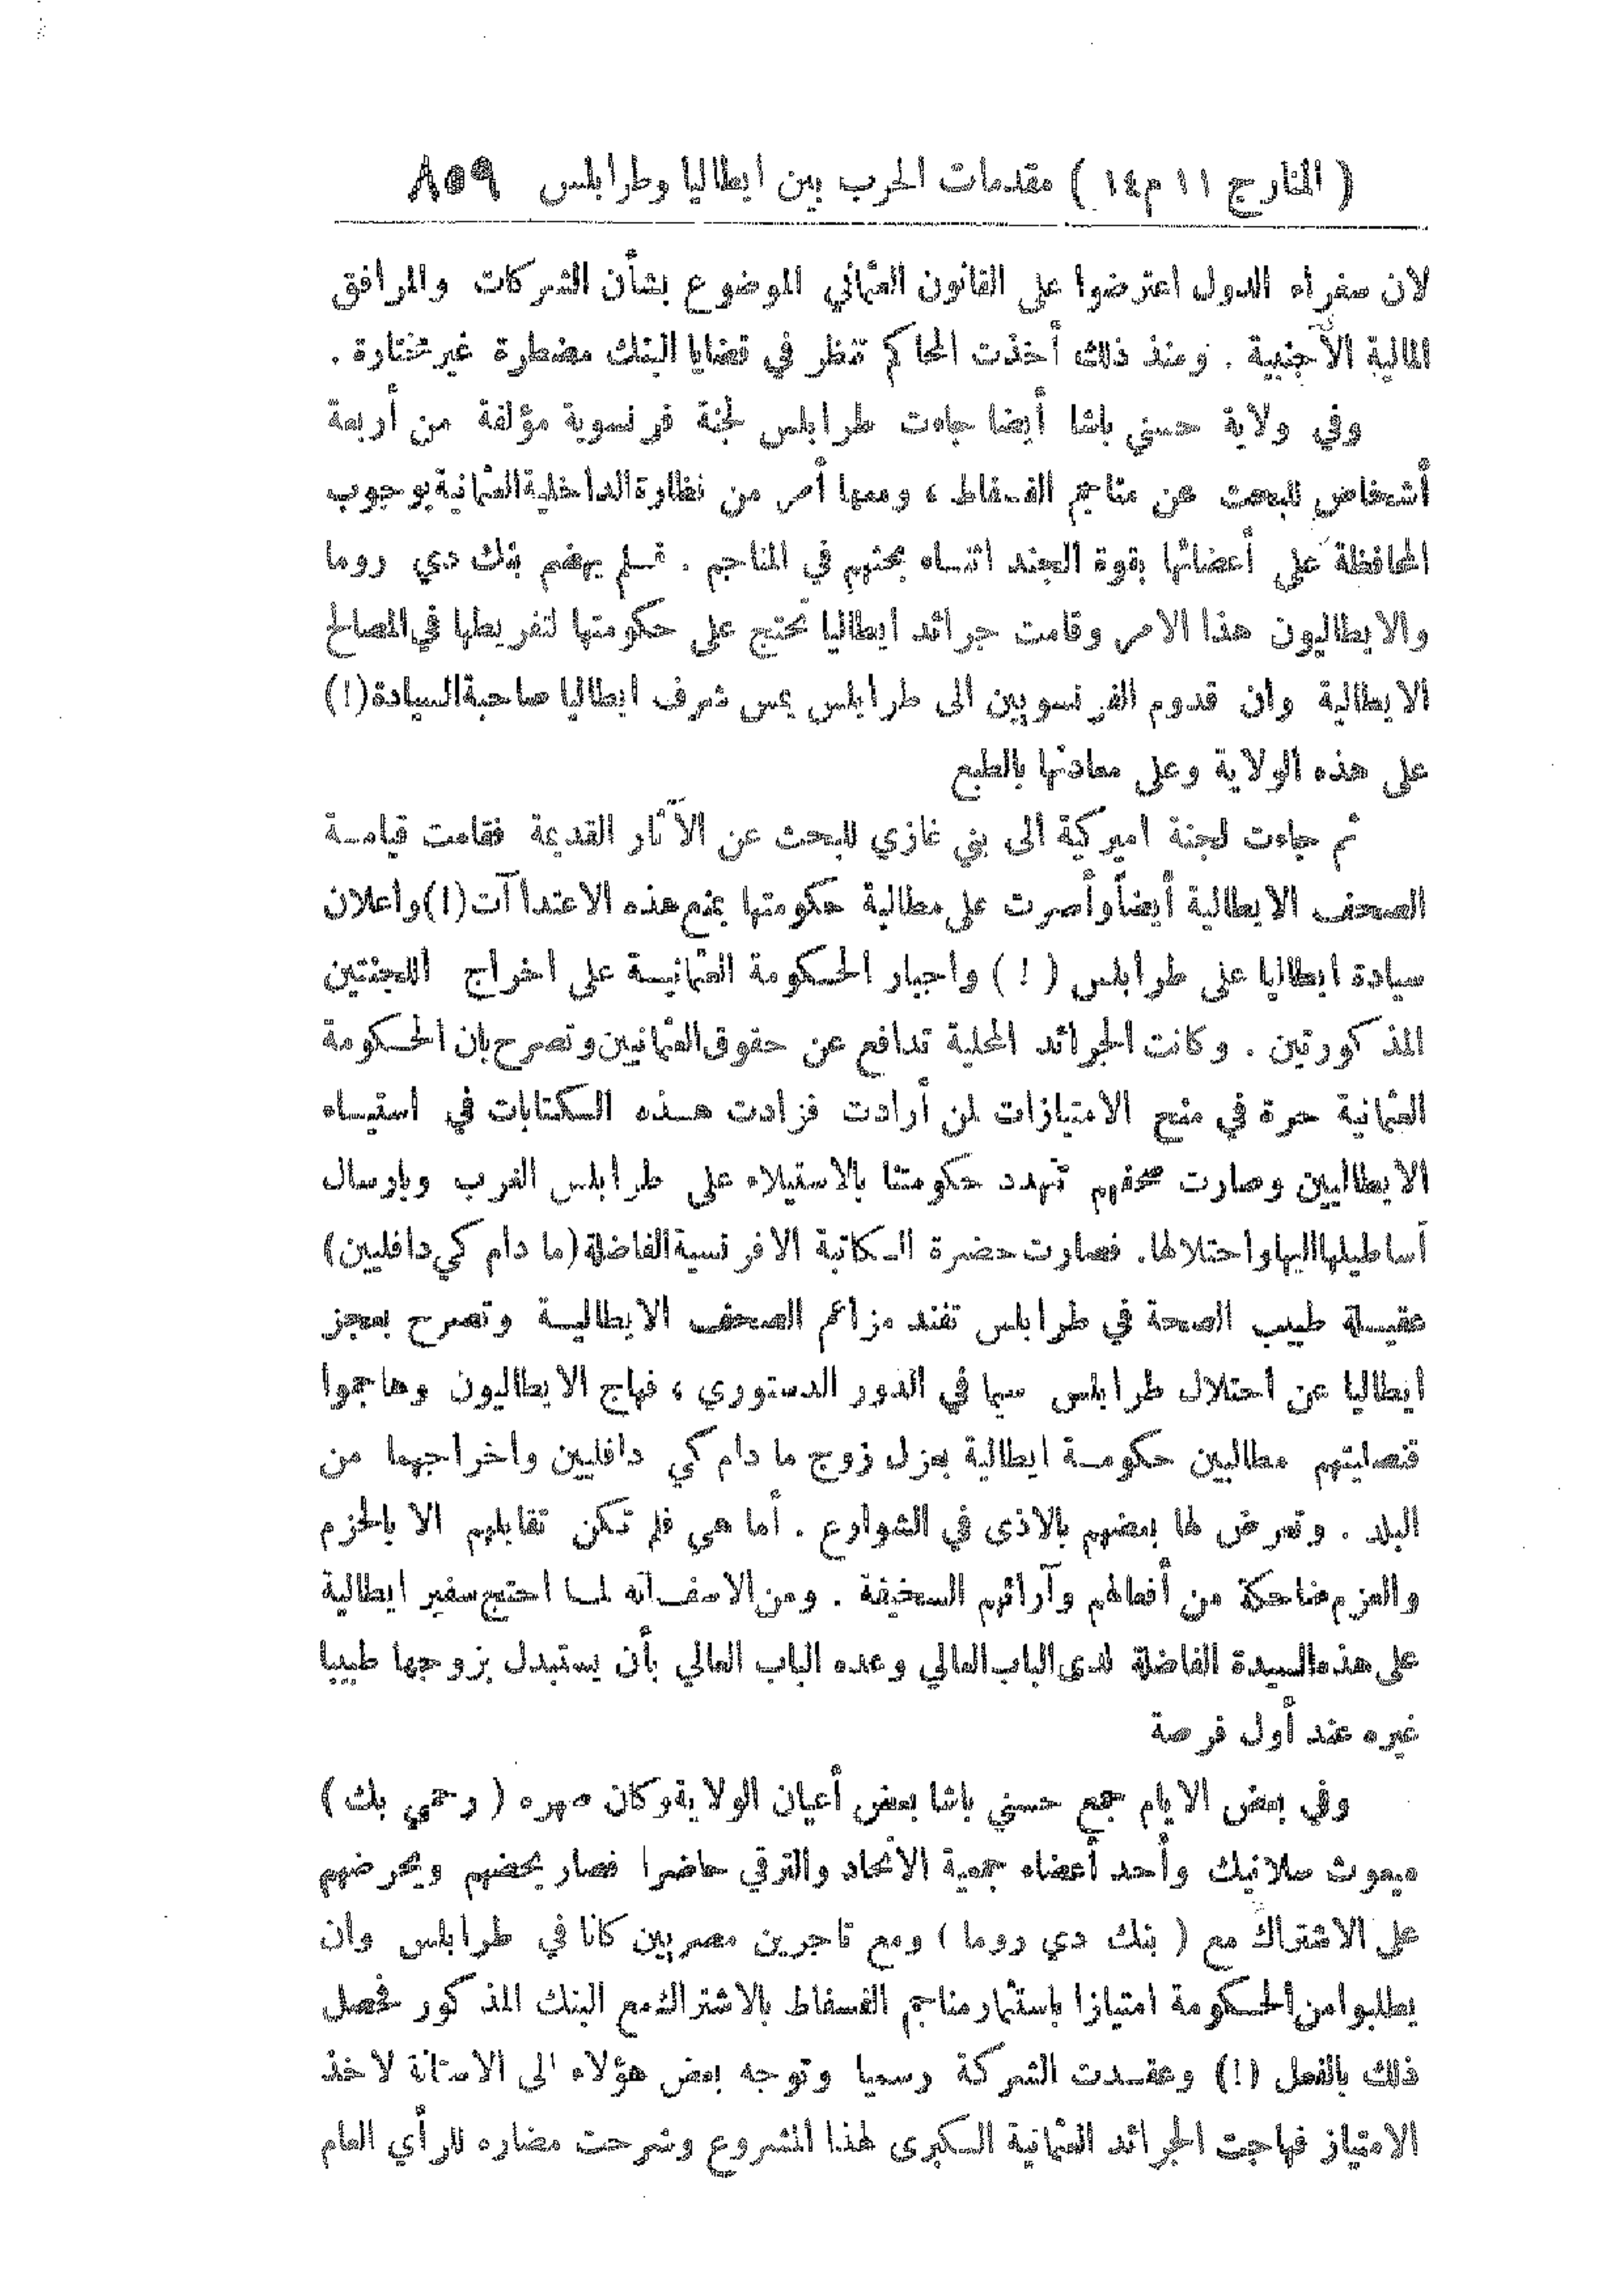 ( المنار ج ١١ م ١٤ ) مقدمات الحرب بين ايطاليا وطرابلس ٨٥٩
لان سفراء الدول اعترضوا على القانون العثماني الموضوع بشأن الشركات والمرافق
المالية الأجنبية . ومنذ ذلك أخذت المحاكم تنظر في قضايا البنك مضطرة غير مختارة .
وفي ولاية حسني باشا أيضا جاءت طرابلس لجنة فرنسوية مؤلفة من أربعة
أشخاص للبحث عن مناجم الفسفاط ، ومعها أمر من نظارة الداخلية العثمانية بوجوب
المحافظة على أعضائها بقوة الجند اثناء بحثهم في المناجم . فلم يهضم بنك دي روما
والايطاليون هذا الامر وقامت جرائد ايطاليا تحتج على حكومتها لتفريطها في المصالح
الايطالية وان قدوم الفرنسويين الى طرابلس يمس شرف ايطاليا صاحبة السيادة (!)
على هذه الولاية وعلى معادنها بالطبع
ثم جاءت لجنة اميركية الى بني غازي للبحث عن الآثار القديمة فقامت قيامة
الصحف الايطالية أيضاً وأصرت على مطالبة حكومتها بمنع هذه الاعتداآت (!) واعلان
سيادة ايطاليا على طرابلس ( ! ) واجبار الحكومة العثمانية على اخراج اللجنتين
المذكورتين . وكانت الجرائد المحلية تدافع عن حقوق العثمانيين وتصرح بان الحكومة
العثمانية حرة في منح الامتيازات لمن أرادت فزادت هذه الكتابات في استياء
الايطاليين وصارت صحفهم تهدد حكومتنا بالاستيلاء على طرابلس الغرب وبارسال
أساطيلها اليها واحتلالها . فصارت حضرة الكاتبة الافرنسية الفاضلة (مادام كي دافلين)
عقيلة طبيب الصحة في طرابلس تفند مزاعم الصحف الايطالية وتصرح بعجز
ايطاليا عن احتلال طرابلس سيما في الدور الدستوري ، فهاج الايطاليون وهاجموا
قنصليتهم مطالبين حكومة ايطالية بعزل زوج مادام كي دافلين واخراجهما من
البلد . وتعرض لها بعضهم بالاذى في الشوارع . أما هي فلم تكن تقابلهم الا بالحزم
والعزم ضاحكة من أفعالهم وآرائهم السخيفة . ومن الاسف انه لما احتج سفير ايطالية
على هذه السيدة الفاضلة لدى الباب العالي وعده الباب العالي بأن يستبدل بزوجها طبيبا
غيره عند أول فرصة
وفي بعض الايام جمع حسني باشا بعض أعيان الولاية وكان صهره ( رحمي بك )
مبعوث سلانيك وأحد أعضاء جمعية الاتحاد والترقي حاضرا فصار يحضهم ويحرضهم
على الاشتراك مع ( بنك دي روما ) ومع تاجرين مصريين كانا في طرابلس وان
يطلبوا من الحكومة امتيازا باستثمار مناجم الفسفاط بالاشتراك مع البنك المذكور فحصل
ذلك بالفعل (!) وعقدت الشركة رسميا وتوجه بعض هؤلاء الى الاستانة لاخذ
الامتياز فهاجت الجرائد العثمانية الكبرى لهذا المشروع وشرحت مضاره للرأي العام